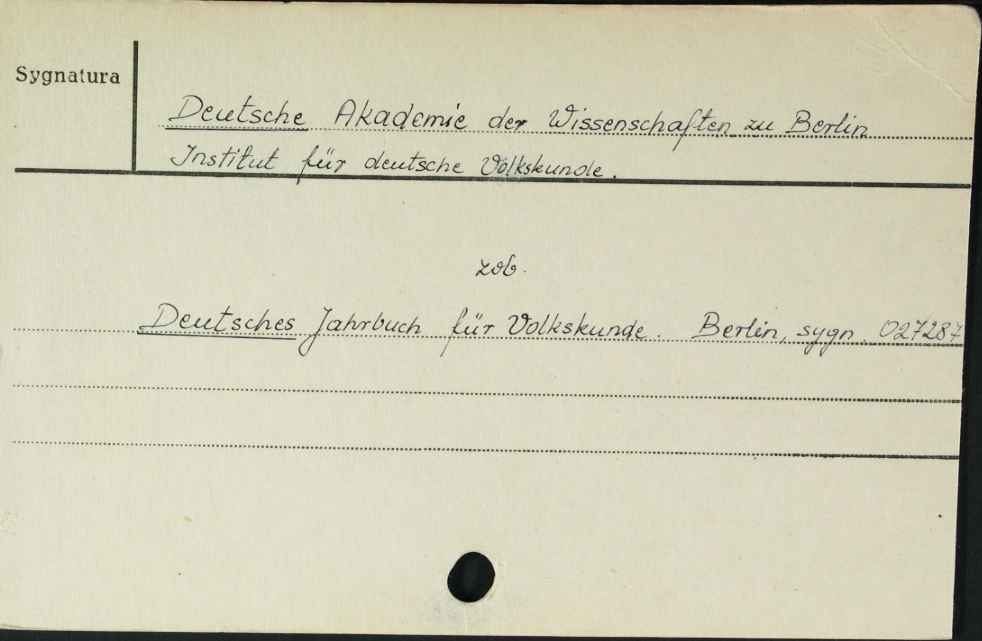 Sygnatura
Deutsche Akademie der Wissenschaften zu Berlin
Institut für deutsche Volkskunde.
zob.
Deutsches Jahrbuch für Volkskunde. Berlin, sygn. 027287